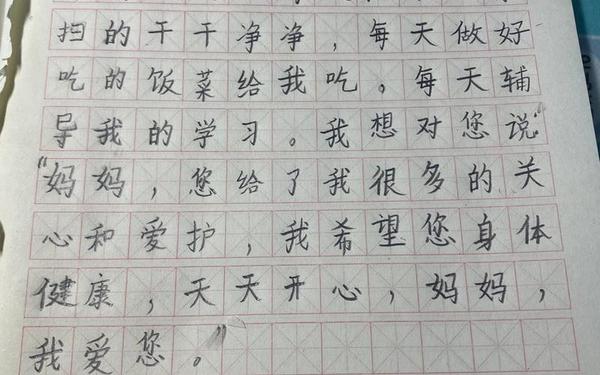 扫的干干净净，每天做好
吃的饭菜给我吃。每天辅
导我的学习。我想对您说"
"妈妈，您给了我很多的关
心和爱护，我希望您身体
健康，天天开心，妈妈，
我爱您。"